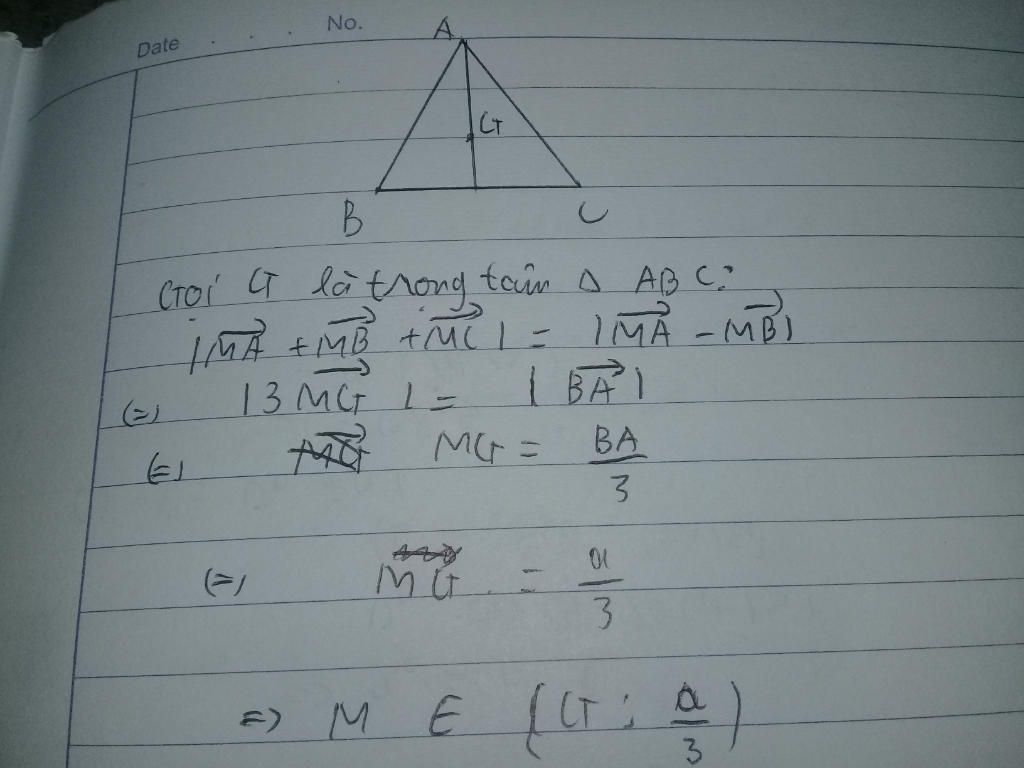 Date . . . No.
A
G
B C
Gọi G là trong tâm Δ ABC:
|MA→ + MB→ + MC→| = |MA→ - MB→|
(=) |3 MG→| = |BA→|
(=) MG = BA/3
(=) MG = a/3
=> M ∈ (G; a/3)